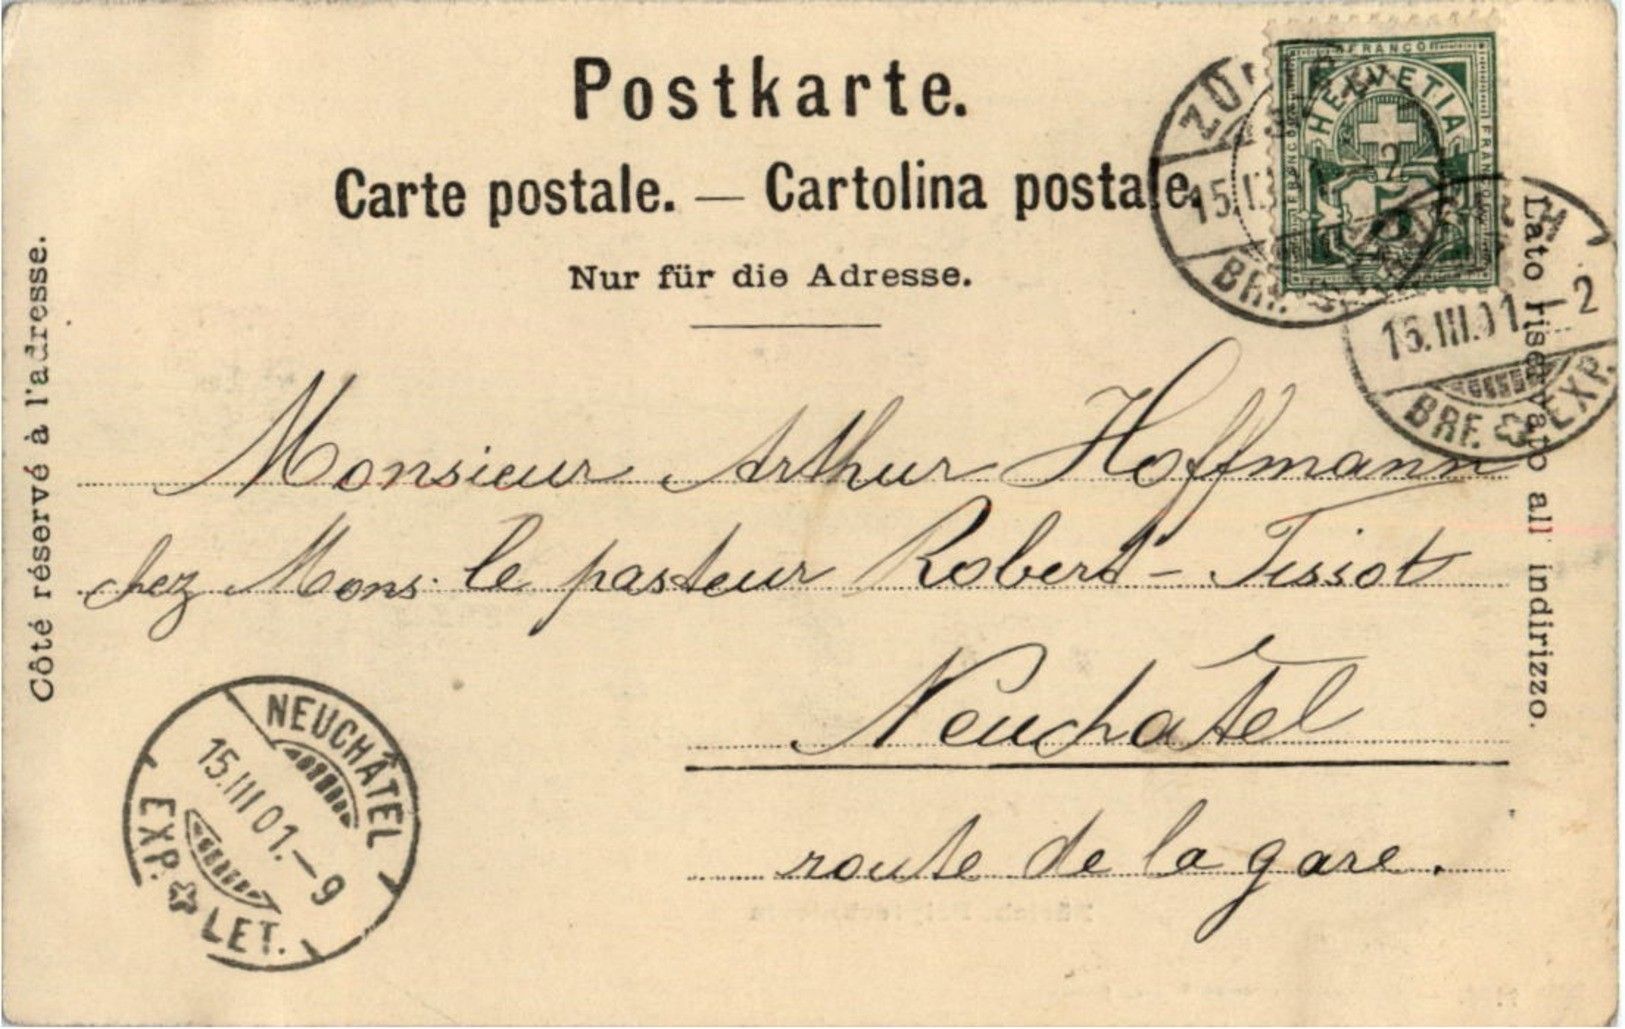 Postkarte.
Carte postale. — Cartolina postale.
Nur für die Adresse.
Côté réservé à l'adresse.
Lato riservato all' indirizzo.
FRANCO
HELVETIA
5
15.III.01.-2
BRF. EXP.
Monsieur Arthur Hoffmann
chez Mons. le pasteur Robert-Tissot
Neuchâtel
route de la gare.
NEUCHÂTEL
15.III 01.-9
EXP. LET.